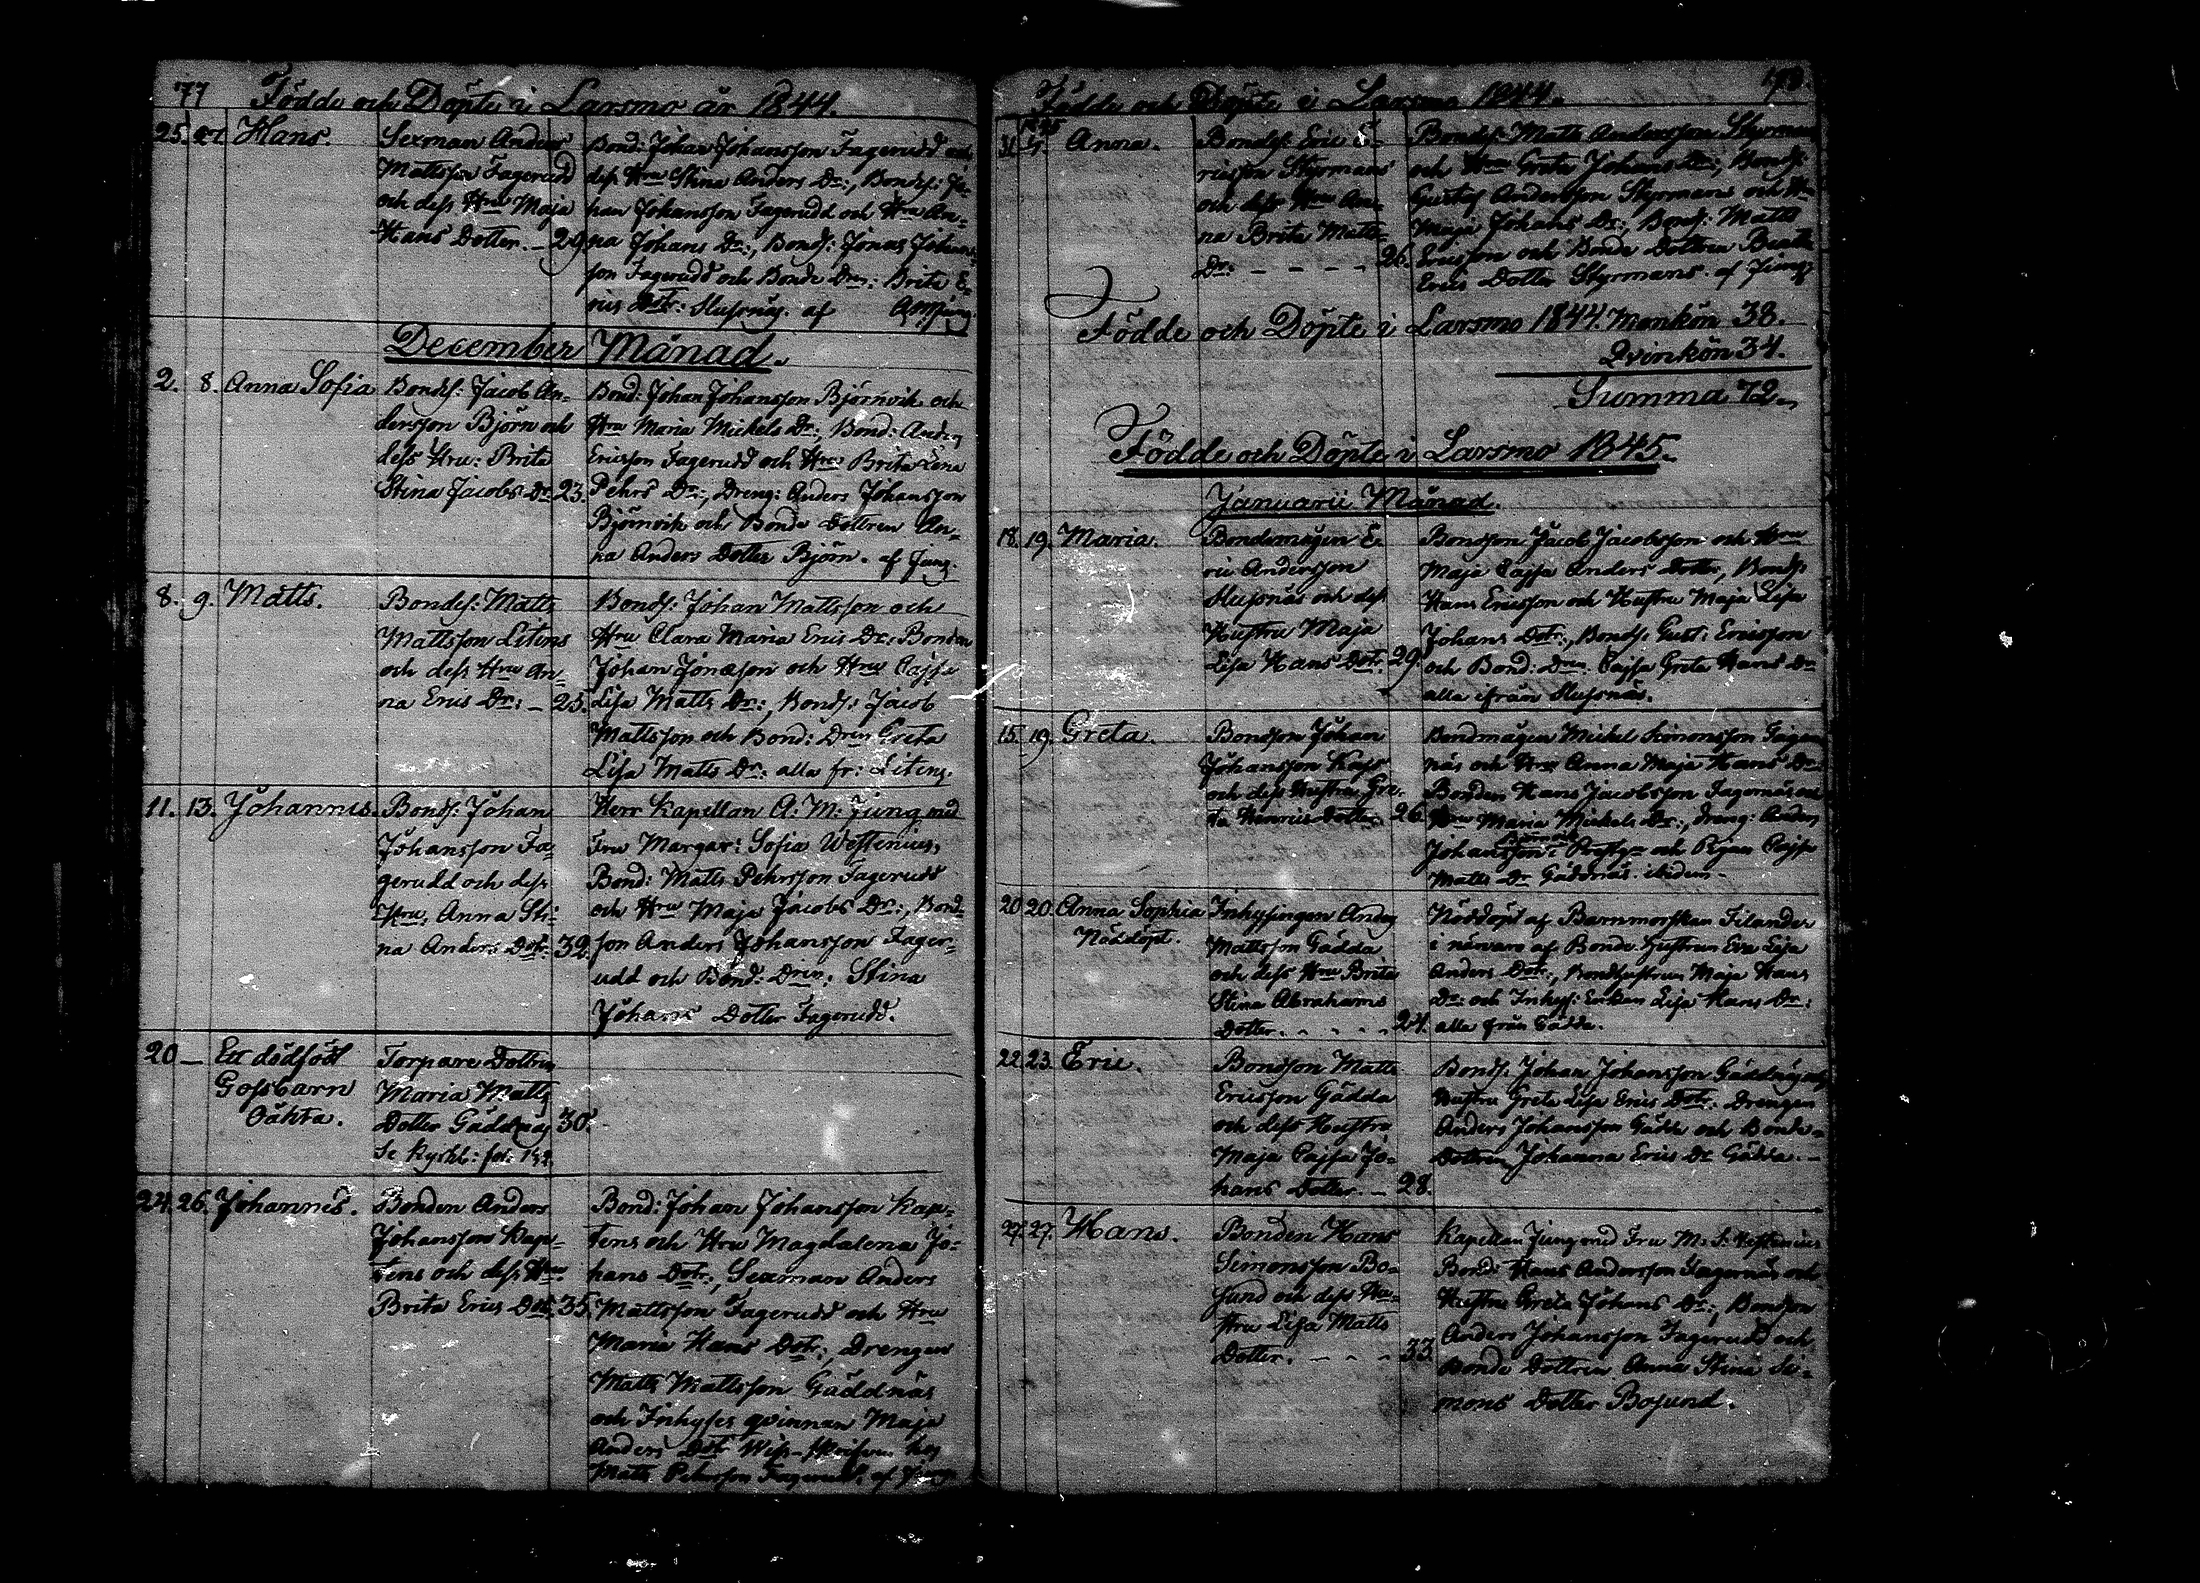 77 Födde och Döpte i Larsmo år 1844.
25. 27. Hans.
Sexman Anders
Mattsson Fagerudd
och dess Hru Maja
Hans Dotter. – 29.
Bond: Johan Johansson Fagerudd och
dess Hru Stina Anders Dr:, Bonds: Jo-
han Johansson Fagerudd och Hru An-
na Johans Dr:, Bonds: Jonas Johans-
son Fagerudd och Bonde Drn: Brita E-
rics Dotr: Slussnäs. af AMJung
December Månad.
2. 8. Anna Sofia
Bonds: Jacob An-
dersson Björn och
dess Hru: Brita
Stina Jacobs Dr. 23.
Bond: Johan Johansson Björnvik och
Hru Maria Mickels Dr:, Bond: Anders
Ericsson Fagerudd och Hru Brita Lena
Pehrs Dr:, Dreng: Anders Johansson
Björnvik och Bonde Dottren An-
na Anders Dotter Björn. af Jung.
8. 9. Matts.
Bondes: Matts
Mattsson Litens
och dess Hru An-
na Erics Dr: – 25.
Bonds: Johan Mattsson och
Hru Clara Maria Erics Dr: Bonden
Johan Jonasson och Hru Cajsa
Lisa Matts Dr:, Bonds: Jacob
Mattsson och Bond: Drn Greta
Lisa Matts Dr: alla fr: Litens.
11. 13. Johannes.
Bonds: Johan
Johansson Fa-
gerudd och dess
Hru. Anna Sti-
na Anders Dotr: 32.
Herr Kapellan A: M: Jung med
Fru Margar: Sofia Westenius,
Bond: Matts Pehrsson Fagerudd
och Hru Maja Jacobs Dr:, Bond-
son Anders Johansson Fager-
udd och Bond: Drn: Stina
Johans Dotter Fagerudd.
20 – Ett dödfödt
Gossbarn
Oäkta.
Torpare Dottren
Maria Matts
Dotter Gäddnäs 30.
Se Kyrkb: fol:
24. 26. Johannes.
Bonden Anders
Johansson Kap-
tens och dess Hru
Brita Erics Dotr. 35.
Bond: Johan Johansson Kap-
tens och Hru Magdalena Jo-
hans Dotr:, Sexman Anders
Mattsson Fagerudd och Hru
Maria Hans Dotr:, Drengen
Matts Mattsson Gäddnäs
och Inhyses qvinnan Maja
Anders Dotr hos
Matts Pehrsson Fagerudd. af Jung
Födde och Döpte i Larsmo 1844. 78.
31. Anna.
Bonds: Eric E-
ricsson Styrmans
och dess Hru An-
na Brita Matts
Dr: – – – – – 26.
Bonds: Matts Andersson Styrmans
och Hru Greta Johans Dr:, Bonds:
Gustaf Andersson Styrmans och Hr
Maja Johans Dr:, Bonds: Matts
Ericsson och Bonde Dottren Beata
Erics Dotter Styrmans. af Jung
Födde och Döpte i Larsmo 1844. Mankön 38.
Qvinkön 34.
Summa 72.
Födde och Döpte i Larsmo 1845.
Januarii Månad.
18. 19. Maria.
Bondemågen E-
ric Andersson
Slussnäs och dess
Hustru Maja
Lisa Hans Dotr. 29.
Bondson Jacob Jacobsson och Hru
Maja Cajsa Anders Dotter, Bonds:
Hans Ericsson och Hustru Maja Lisa
Johans Dotr:, Bonds: Gust: Ericsson
och Bond: Drn Cajsa Greta Hans Dr
alla ifrån Slussnäs.
15. 19. Greta.
Bondson Johan
Johansson Kass
och dess Hustru Gre-
ta Henrics Dotter 26.
Bondmågen Mickel Simonsson Fager-
näs och Hru Anna Maja Hans Dr
Bonden Hans Jacobsson Fagernäs och
Hru Maria Mickels Dr:, Dreng: Anders
Johansson och Pigan Cajsa
Matts Dr Gäddnäs
20. 20. Anna Sophia
Nöddöpt.
Inhysingen Anders
Mattsson Gädda
och dess Hru Brita
Stina Abrahams
Dotter. – – – – 24.
Nöddöpt af Barnmorskan Filander
i närvaro af Bonde Hustrun Eva Lisa
Anders Dotr:, Bondhustrun Maja Hans
Dr: och Inhys: Enkan Lisa Hans Dr:
alla från Gädda.
22. 23. Eric.
Bondson Matts
Ericsson Gädda
och dess Hustru
Maja Cajsa Jo-
hans Dotter. – 28.
Bonds. Johan Johansson Gäddnäs och
Hustru Greta Lisa Erics Dotr: Drengen
Anders Johansson Gädda och Bonde-
Dottren Johanna Erics Dr Gädda. –
27. 27. Hans.
Bonden Hans
Simonsson Bo-
sund och dess Hu-
stru Lisa Matts
Dotter. – – – 33.
Kapellan Jung med Fru M: S: Westenius
Bonde Hans Andersson Fagernäs och
Hustru Greta Johans Dr:, Bondson
Anders Johansson Fagerudd och
Bonde Dottren Anna Stina Si-
mons Dotter Bosund.